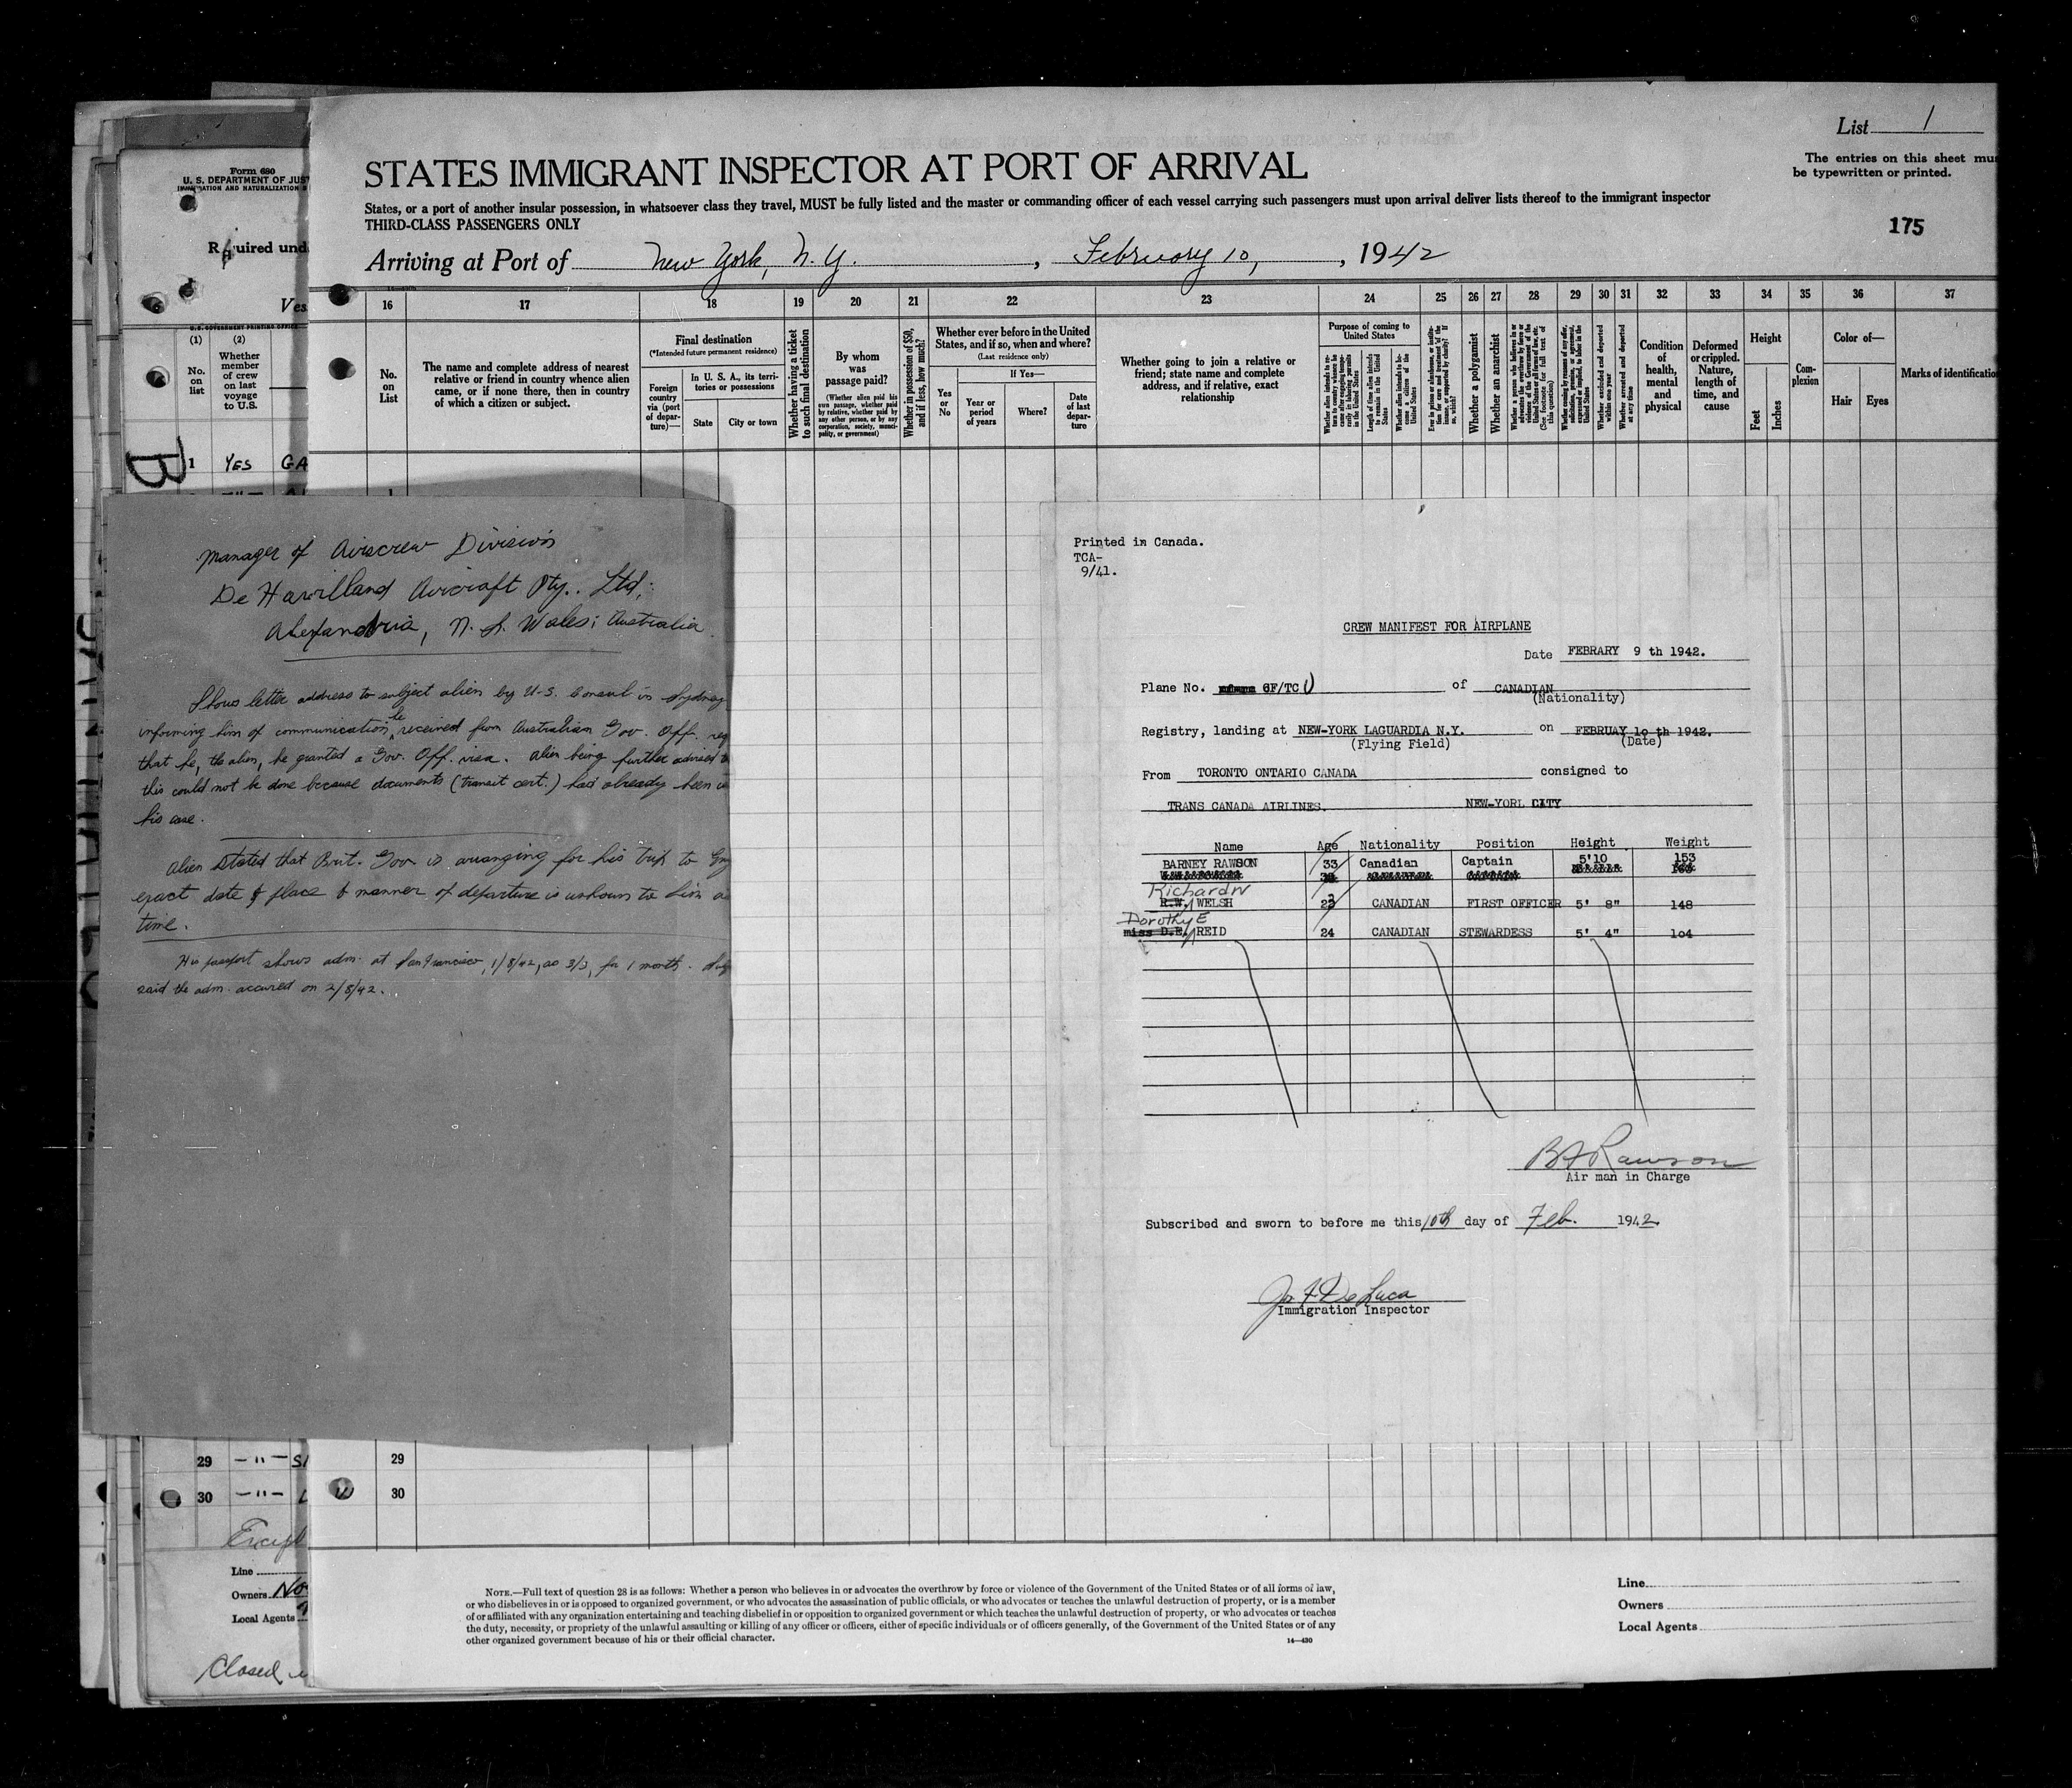 List 1
The entries on this sheet mus
be typewritten or printed.
STATES IMMIGRANT INSPECTOR AT PORT OF ARRIVAL
States, or a port of another insular possession, in whatsoever class they travel, MUST be fully listed and the master or commanding officer of each vessel carrying such passengers must upon arrival deliver lists thereof to the immigrant inspector
THIRD-CLASS PASSENGERS ONLY
175
Arriving at Port of New York, N. Y. , February 10, , 1942
Form 680
U. S. DEPARTMENT OF JUS
IMMIGRATION AND NATURALIZATION
R quired und
Ves
U.S. GOVERNMENT PRINTING OFFICE
(1) (2)
No. on list
Whether member of crew on last voyage to U.S.
B
1 YES GA
16 17 18 19 20 21 22 23 24 25 26 27 28 29 30 31 32 33 34 35 36 37
No. on List
The name and complete address of nearest
relative or friend in country whence alien
came, or if none there, then in country
of which a citizen or subject.
Final destination
(*Intended future permanent residence)
Foreign country via (port of departure)—
In U. S. A., its territories or possessions
State City or town
Whether having a ticket to such final destination
By whom was passage paid?
(Whether alien paid his own passage, whether paid by relative, whether paid by any other person, or by any corporation, society, municipality, or government)
Whether in possession of $50, and if less, how much?
Whether ever before in the United
States, and if so, when and where?
(Last residence only)
If Yes—
Yes or No
Year or period of years
Where?
Date of last departure
Whether going to join a relative or
friend; state name and complete
address, and if relative, exact
relationship
Purpose of coming to
United States
Length of time alien intends to remain in the United States
Whether alien intends to become a citizen of the United States
Whether a polygamist
Whether an anarchist
Whether excluded and deported within one year
Whether arrested and deported at any time
Condition of health, mental and physical
Deformed or crippled. Nature, length of time, and cause
Height
Feet Inches
Complexion
Color of—
Hair Eyes
Marks of identificatio
Manager of Airscrew Division
De Havilland Aircraft Pty.. Ltd;
Alexandria, N. S. Wales; Australia.
Shows letter address to subject alien by U-S. Consul in Sydney
informing him of communication he received from Australian Gov. Off. req
that he, the alien, be granted a Gov. Off. visa. Alien being further advised
this could not be done because documents (transit cert.) had already been
his case.
Alien stated that Brit. Gov. is arranging for his trip to Eng
exact date & place & manner of departure is unknown to him
time.
His passport shows adm. at San Francisco, 1/8/42, as 3/3, for 1 month.
said the adm. occured on 2/8/42.
Printed in Canada.
TCA-
9/41.
CREW MANIFEST FOR AIRPLANE
Date FEBRARY 9 th 1942.
Plane No. CF/TC of CANADIAN
(Nationality)
Registry, landing at NEW-YORK LAGUARDIA N.Y. on FEBRUAY 1o th 1942.
(Flying Field) (Date)
From TORONTO ONTARIO CANADA consigned to
TRANS CANADA AIRLINES. NEW-YORL CITY
Name Age Nationality Position Height Weight
BARNEY RAWSON 33 Canadian Captain 5'10 153
Richard W
R.W. WELSH 23 CANADIAN FIRST OFFICER 5' 8" 148
Dorothy E
miss D.E. REID 24 CANADIAN STEWARDESS 5' 4" 1o4
B A Rawson
Air man in Charge
Subscribed and sworn to before me this 10th day of Feb. 1942.
Jos F De Luca
Immigration Inspector
29 — " — SI
30 — " —
29
30
Line
Owners No
Local Agents
Closed
NOTE.—Full text of question 28 is as follows: Whether a person who believes in or advocates the overthrow by force or violence of the Government of the United States or of all forms of law,
or who disbelieves in or is opposed to organized government, or who advocates the assassination of public officials, or who advocates or teaches the unlawful destruction of property, or is a member
of or affiliated with any organization entertaining and teaching disbelief in or opposition to organized government or which teaches the unlawful destruction of property, or who advocates or teaches
the duty, necessity, or propriety of the unlawful assaulting or killing of any officer or officers, either of specific individuals or of officers generally, of the Government of the United States or of any
other organized government because of his or their official character.
14—430
Line
Owners
Local Agents